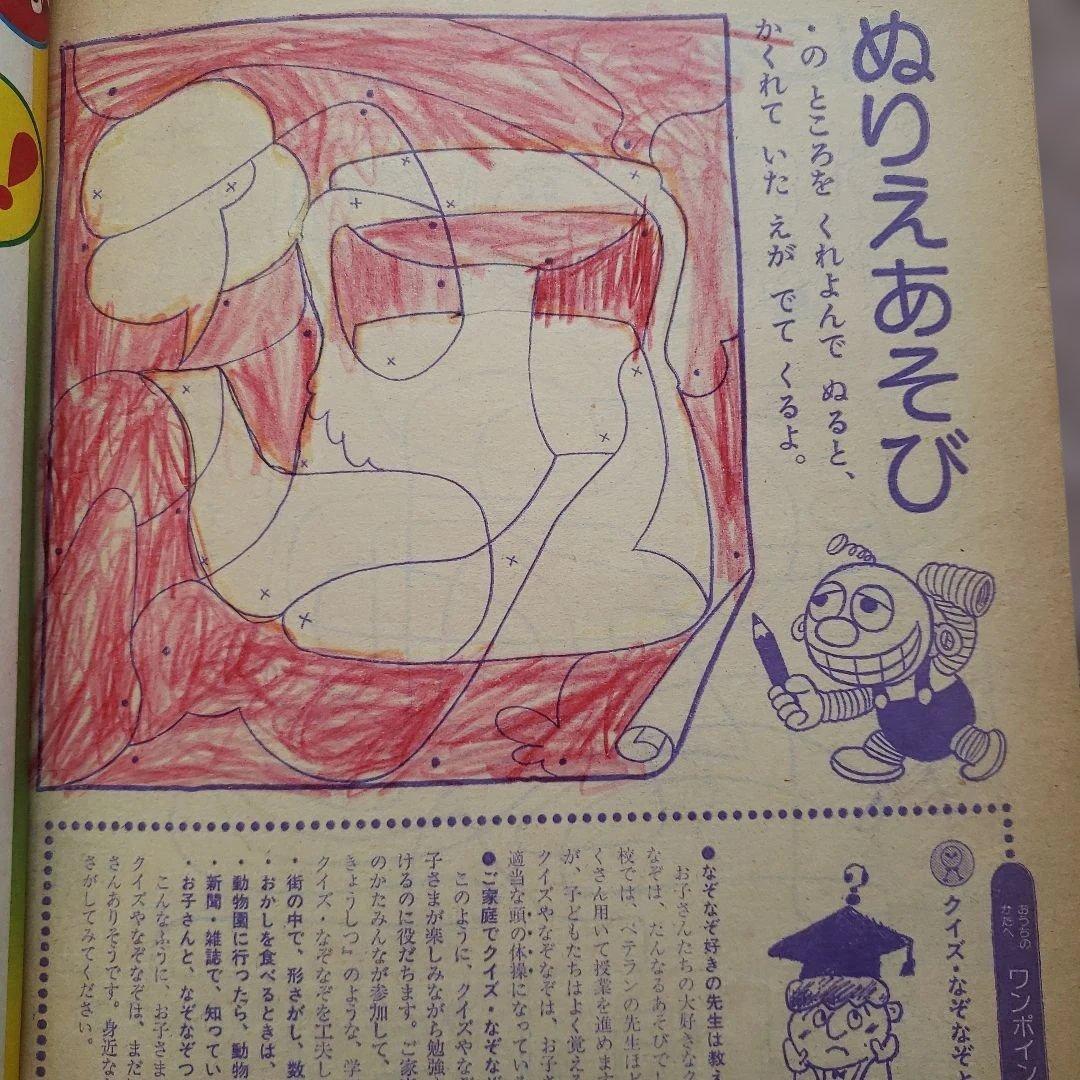 ぬりえあそび
・の ところを くれよんで ぬると、
かくれて いた えが でて くるよ。
おうちの
かたへ
ワンポイン
クイズ・なぞなぞと
●なぞなぞ好きの先生は教え
お子さんたちの大好きなク
なぞは、たんなるあそびでし
校では、ベテランの先生ほど
くさん用いて授業を進めます
が、子どもたちはよく覚える
クイズやなぞなぞは、お子さ
適当な頭の体操になっている
●ご家庭でクイズ・なぞなぞ
このように、クイズやなぞ
子さまが楽しみながら勉強す
けるのに役だちます。ご家庭
のかたみんなが参加して、
きょうしつ』のような、学
クイズ・なぞなぞを工夫し
・街の中で、形さがし、数
・おかしを食べるときは、
・動物園に行ったら、動物
・新聞・雑誌で、知ってい
・お子さんと、なぞなぞつ
こんなふうに、お子さま
クイズやなぞなぞは、まだ
さんありそうです。身近な
さがしてみてください。